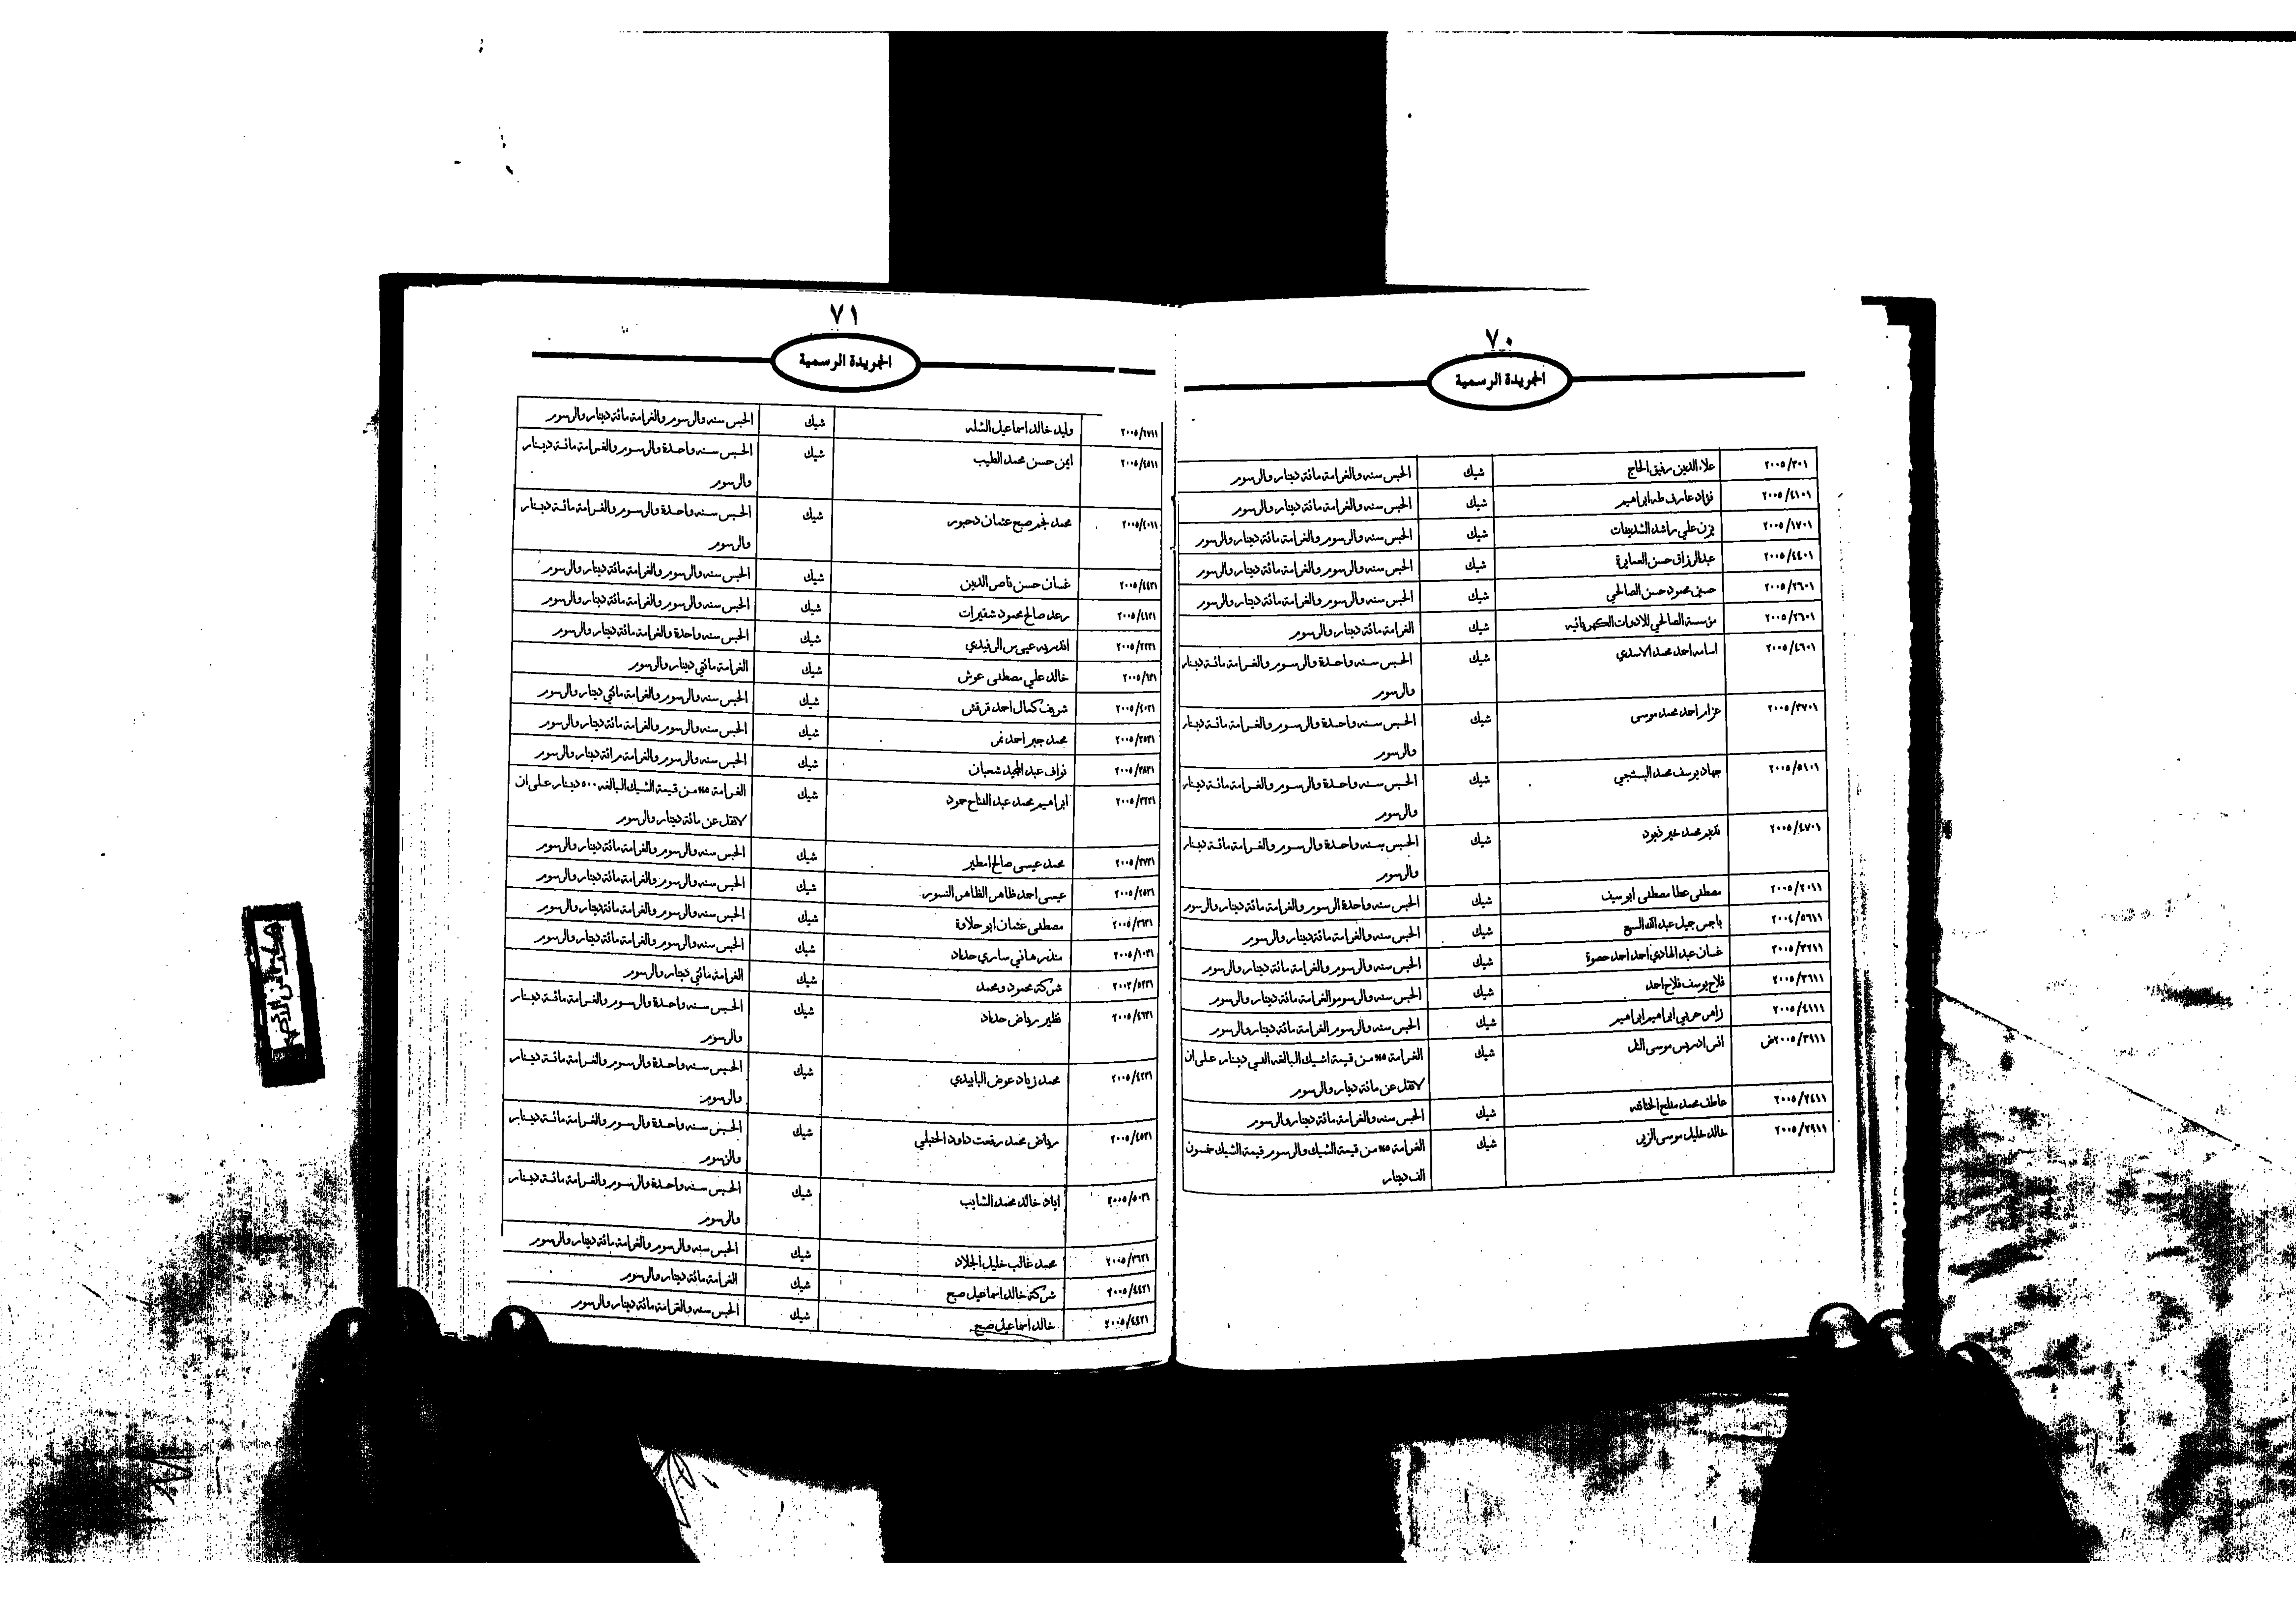 ٧٠
الجريدة الرسمية
٢٠٠٥/٣٠١ علاء الدين رفيق الحاج شيك الحبس سنه والغرامة مائة دينار والرسوم
٢٠٠٥/٤١٠١ فؤاد عارف طه ابراهيم شيك الحبس سنه والغرامة مائة دينار والرسوم
٢٠٠٥/١٧٠١ يزن علي راشد الشديفات شيك الحبس سنه والرسوم والغرامة مائة دينار والرسوم
٢٠٠٥/٤٤٠١ عبدالرزاق حسن العمايرة شيك الحبس سنه والرسوم والغرامة مائة دينار والرسوم
٢٠٠٥/٢٦٠١ حسين محمود حسن الصالحي شيك الحبس سنه والرسوم والغرامة مائة دينار والرسوم
٢٠٠٥/٢٦٠١ مؤسسة الصالحي للادوات الكهربائيه شيك الغرامة مائة دينار والرسوم
٢٠٠٥/٤٦٠١ اسامه احمد محمد الاسدي شيك الحبس سنه واحدة والرسوم والغرامة مائة دينار
والرسوم
٢٠٠٥/٣٧٠١ عزام احمد محمد موسى شيك الحبس سنه واحدة والرسوم والغرامة مائة دينار
والرسوم
٢٠٠٥/٥١٠١ جهاد يوسف محمد البستنجي شيك الحبس سنه واحدة والرسوم والغرامة مائة دينار
والرسوم
٢٠٠٥/٤٧٠١ محمد خير شيك الحبس سنه واحدة والرسوم والغرامة مائة دينار
والرسوم
٢٠٠٥/٢٠١١ مصطفى عطا مصطفى ابو سيف شيك الحبس سنه واحدة الرسوم والغرامة مائة دينار والرسوم
٢٠٠٤/٥٦١١ جميل عبد الله شيك الحبس سنه والغرامة مائة دينار والرسوم
٢٠٠٥/٣٢١١ غسان عبد الهادي احمد احمد حصوة شيك الحبس سنه والرسوم والغرامة مائة دينار والرسوم
٢٠٠٥/٣٦١١ فلاح يوسف فلاح احمد شيك الحبس سنه والرسوم والغرامة مائة دينار والرسوم
٢٠٠٥/٤١١١ زاهر حربي ابراهيم ابراهيم شيك الحبس سنه والرسوم الغرامة مائة دينار والرسوم
٢٠٠٥/٣٩١١ض انس ادريس موسى التل شيك الغرامة ٥% من قيمة اشيك البالغه الفي دينار على ان
لاتقل عن مائة دينار والرسوم
٢٠٠٥/٢٤١١ عاطف محمد مفلح شيك الحبس سنه والغرامة مائة دينار والرسوم
٢٠٠٥/٢٩١١ خالد خليل موسى الزين شيك الغرامة ٥% من قيمة الشيك والرسوم قيمة الشيك خمسون
الف دينار
٧١
الجريدة الرسمية
٢٠٠٥/٢٧١١ وليد خالد اسماعيل الشله شيك الحبس سنه والرسوم والغرامة مائة دينار والرسوم
٢٠٠٥/٤٥١١ ايمن حسن محمد الطيب شيك الحبس سنه واحدة والرسوم والغرامة مائة دينار
والرسوم
٢٠٠٥/٤٠١١ محمد نجم صبح عثمان دحبور شيك الحبس سنه واحدة والرسوم والغرامة مائة دينار
والرسوم
٢٠٠٥/٤٤٢١ غسان حسن ناصر الدين شيك الحبس سنه والرسوم والغرامة مائة دينار والرسوم
٢٠٠٥/٤١٢١ رعد صالح محمود شقيرات شيك الحبس سنه والرسوم والغرامة مائة دينار والرسوم
٢٠٠٥/٢٢٢١ اندريه عيسى الرفيدي شيك الحبس سنه واحدة والغرامة مائة دينار والرسوم
خالد علي مصطفى عوض شيك الغرامة مائتي دينار والرسوم
٢٠٠٥/٤٠٢١ شريف كمال احمد قرقش شيك الحبس سنه والرسوم والغرامة مائتي دينار والرسوم
٢٠٠٥/٢٥٢١ محمد جبر احمد نمر شيك الحبس سنه والرسوم والغرامة مائة دينار والرسوم
٢٠٠٥/٢٨٢١ نواف عبد المجيد شعبان شيك الحبس سنه والرسوم والغرامة مائة دينار والرسوم
٢٠٠٥/٢٢٢١ ابراهيم محمد عبد الفتاح حمود شيك الغرامة ٥% من قيمة الشيك البالغه ٥٠٠ دينار على ان
لاتقل عن مائة دينار والرسوم
محمد عيسى صالح امطير شيك الحبس سنه والرسوم والغرامة مائة دينار والرسوم
٢٠٠٥/٢٥٢١ عيسى احمد ظاهر الظاهر النسور شيك الحبس سنه والرسوم والغرامة مائة دينار والرسوم
مصطفى عثمان ابو حلاوة شيك الحبس سنه والرسوم والغرامة مائة دينار والرسوم
٢٠٠٥/١٠٢١ منذر هاني ساري حداد شيك الحبس سنه والرسوم والغرامة مائة دينار والرسوم
٢٠٠٣/٥٢٢١ شركة محمود ومحمد شيك الغرامة مائتي دينار والرسوم
٢٠٠٥/٤٦٢١ نظير رياض حداد شيك الحبس سنه واحدة والرسوم والغرامة مائة دينار
والرسوم
٢٠٠٥/٤٢٢١ محمد زياد عوض البابيدي شيك الحبس سنه واحدة والرسوم والغرامة مائة دينار
والرسوم
٢٠٠٥/٤٥٢١ رياض محمد رفعت داود الحنبلي شيك الحبس سنه واحدة والرسوم والغرامة مائة دينار
والرسوم
٢٠٠٥/٥٠٢١ اياد خالد محمد الشايب شيك الحبس سنه واحدة والرسوم والغرامة مائة دينار
والرسوم
٢٠٠٥/٣٦٢١ محمد غالب خليل الجلاد شيك الحبس سنه والرسوم والغرامة مائة دينار والرسوم
٢٠٠٥/٤٤٢١ شركة خالد اسماعيل صبح شيك الغرامة مائة دينار والرسوم
٢٠٠٥/٤٤٢١ خالد اسماعيل صبح شيك الحبس سنه والغرامة مائة دينار والرسوم